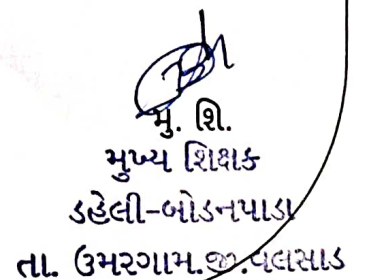 મુ. શિ.
મુખ્ય શિક્ષક
ડહેલી-બોડનપાડા
તા. ઉમરગામ.જી.વલસાડ